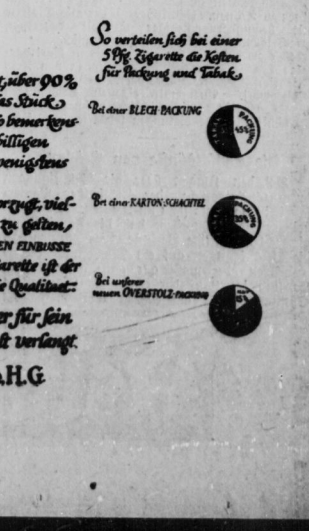 t, über 90%
as Stück
bemerkens-
billigen
wenigstens
orzugt, viel-
zu gelten,
EN EINBUSSE
arette ist der
e Qualitaet:
er für sein
ft verlangt.
.H.G
So verteilen sich bei einer
5 Pfg. Zigarette die Kosten
für Packung und Tabak
Bei einer BLECH PACKUNG
PACKUNG
45%
Bei einer KARTON-SCHACHTEL
PACKUNG
35%
Bei unserer
neuen OVERSTOLZ-PACKUNG
15%